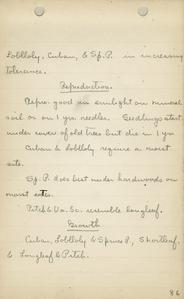 Loblolly, Cuban, & Sp. P. in increasing
tolerance.
Reproduction.
Repro. good in sunlight on mineral
soil or on 1 yr. needles. Seedlings start
under cover of old trees but die in 1 yr
Cuban & Loblolly require a moist
site.
Sp. P. does best under hardwoods on
moist sites.
Pitch & Va. Sc. resemble Longleaf.
Growth
Cuban, Loblolly & Spruce P., Shortleaf,
& Longleaf & Pitch.
86